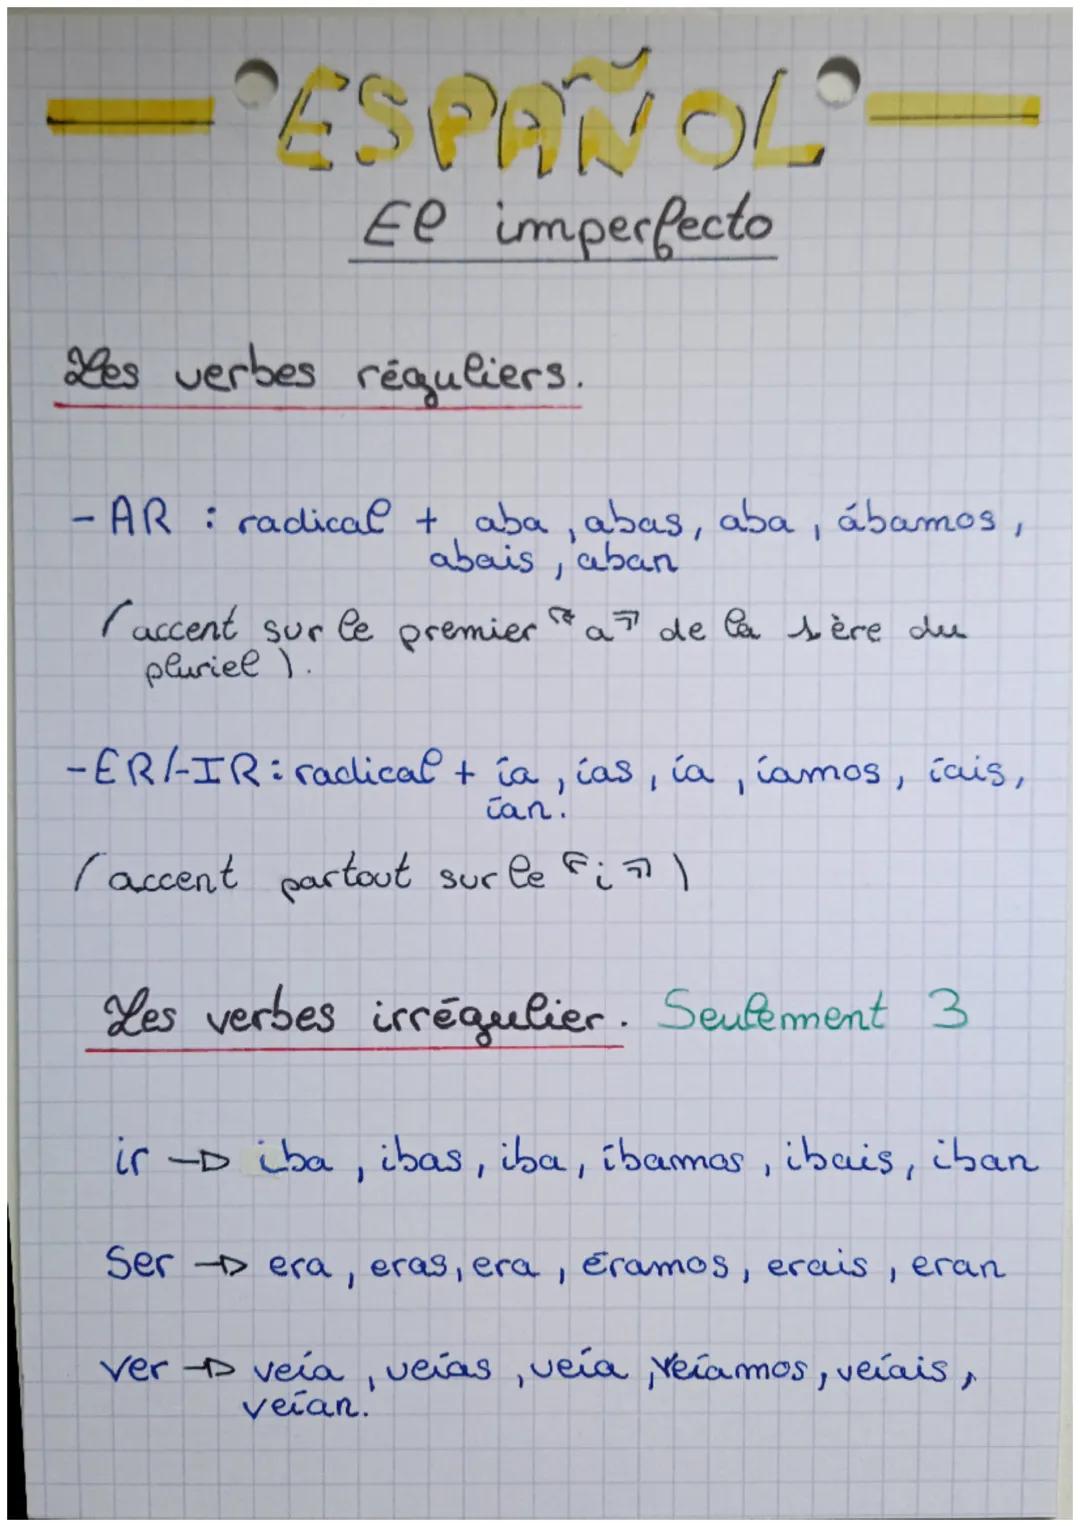 ESPAÑOL
El imperfecto
Les verbes réguliers.
- AR : radical + aba, abas, aba, ábamos,
abais, aban
(accent sur le premier "a" de la 1ère du
pluriel).
- ER/-IR : radical + ía, ías, ía, íamos, íais,
ían.
(accent partout sur le "i")
Les verbes irrégulier. Seulement 3
ir → iba, ibas, iba, íbamos, ibais, iban
Ser → era, eras, era, éramos, erais, eran
ver → veía, veías, veía, veíamos, veíais,
veían.